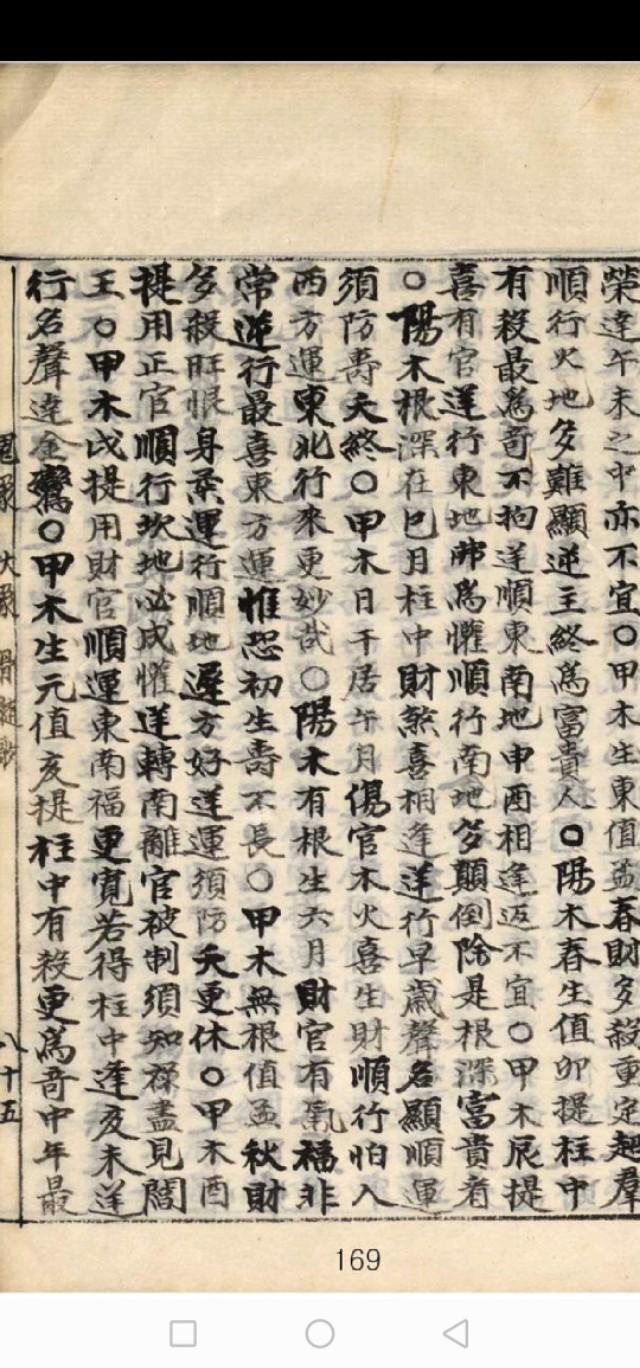 榮達午未之中亦不宜○甲木生東值孟春財多殺重定越羣
順行火地多難顯逆王終為富貴人○陽木春生值卯提柱中
有殺最為奇不拘逆順東南地申酉相逢返不宜○甲木辰提
喜有官逆行東地弗為懼順行南地多顛倒除是根深富貴者
○陽木根深在巳月柱中財煞喜相逢逆行早歲聲名顯順運
須防壽夭終○甲木日干居午月傷官木火喜生財順行怕入
西方運東北行來更妙哉○陽木有根生六月財官有氣福非
常逆行最喜東方運惟恐初生壽不長○甲木無根值孟秋財
多殺旺恨身柔運行順地遲方好逆運須防夭更休○甲木酉
提用正官順行坎地必成懼逆轉南離官被制須知祿盡見閻
王○甲木戌提用財官順運東南福更寬若得柱中逢亥未逆
行名聲達金鸞○甲木生元值亥提柱中有殺更為奇中年最
大象 骨髓歌 八十五
169